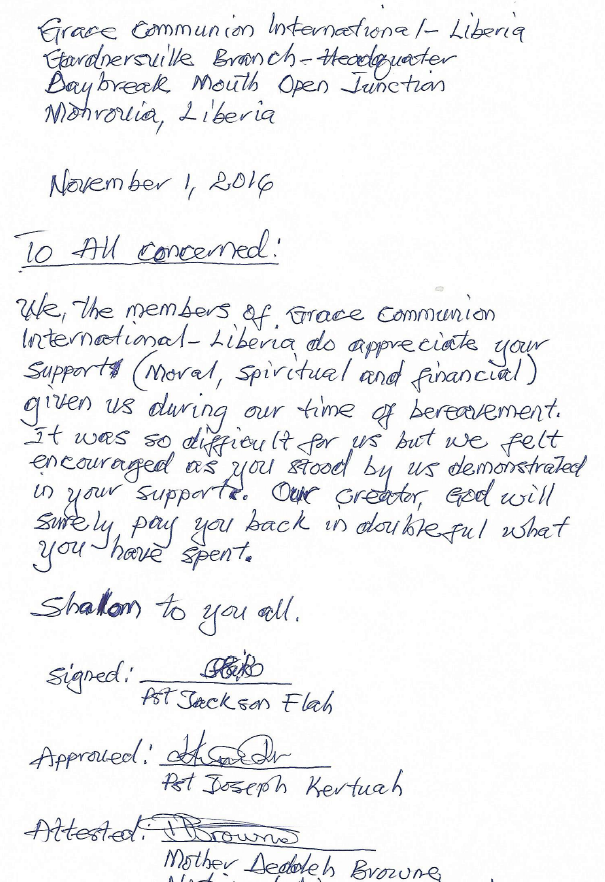 Grace Communion International - Liberia
Gardnersville Branch - Headquater
Daybreak Mouth Open Junction
Monrovia, Liberia
November 1, 2016
To All Concerned:
We, the members of Grace Communion
International - Liberia do appreciate your
support (moral, spiritual and financial)
given us during our time of bereavement.
It was so difficult for us but we felt
encouraged as you stood by us demonstrated
in your support. Our creator, God will
surely pay you back in double ful what
you have spent.
Shalom to you all.
Signed:
Pst Jackson Flah
Approved:
Pst Joseph Kertuah
Attested: Browne
Mother Deddeh Browne